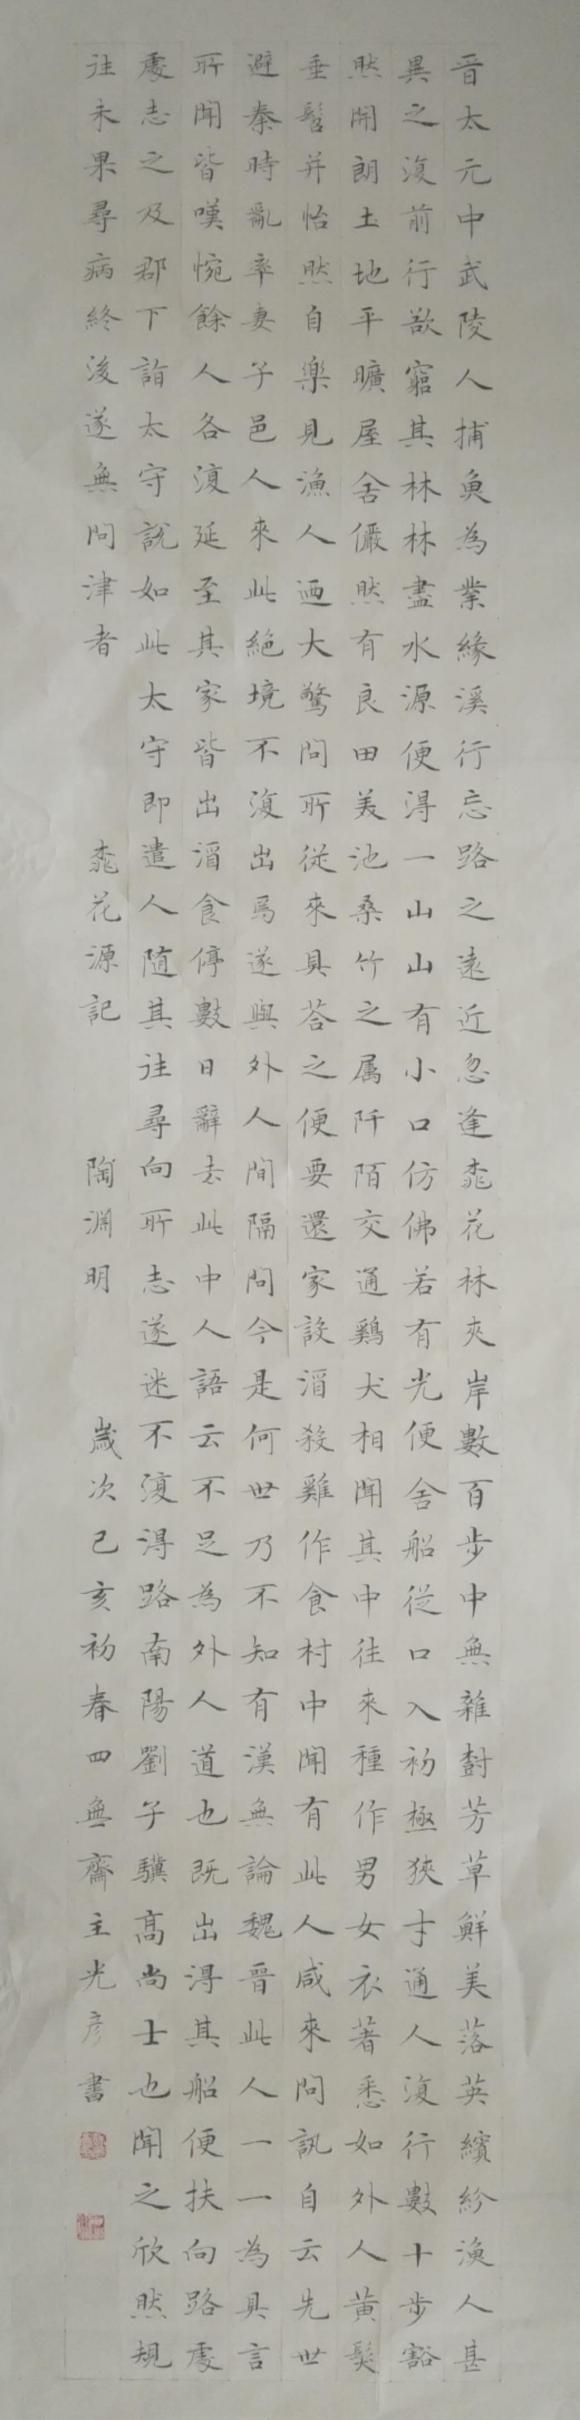 晉太元中武陵人捕魚為業緣溪行忘路之遠近忽逢桃花林夾岸數百步中無雜樹芳草鮮美落英繽紛漁人甚
異之復前行欲窮其林林盡水源便得一山山有小口仿佛若有光便舍船從口入初極狹才通人復行數十步豁
然開朗土地平曠屋舍儼然有良田美池桑竹之属阡陌交通鷄犬相聞其中往來種作男女衣著悉如外人黄髮
垂髫并怡然自樂見漁人迺大驚問所從來具荅之便要還家設酒殺雞作食村中聞有此人咸來問訊自云先世
避秦時亂率妻子邑人來此絕境不復出焉遂與外人間隔問今是何世乃不知有漢無論魏晉此人一一為具言
所聞皆嘆惋餘人各復延至其家皆出酒食停數日辭去此中人語云不足為外人道也既出得其船便扶向路處
處志之及郡下詣太守說如此太守即遣人隨其往尋向所志遂迷不復得路南陽劉子驥高尚士也聞之欣然規
往未果尋病終後遂無問津者 桃花源記 陶淵明 歲次己亥初春四無齋主光彦書